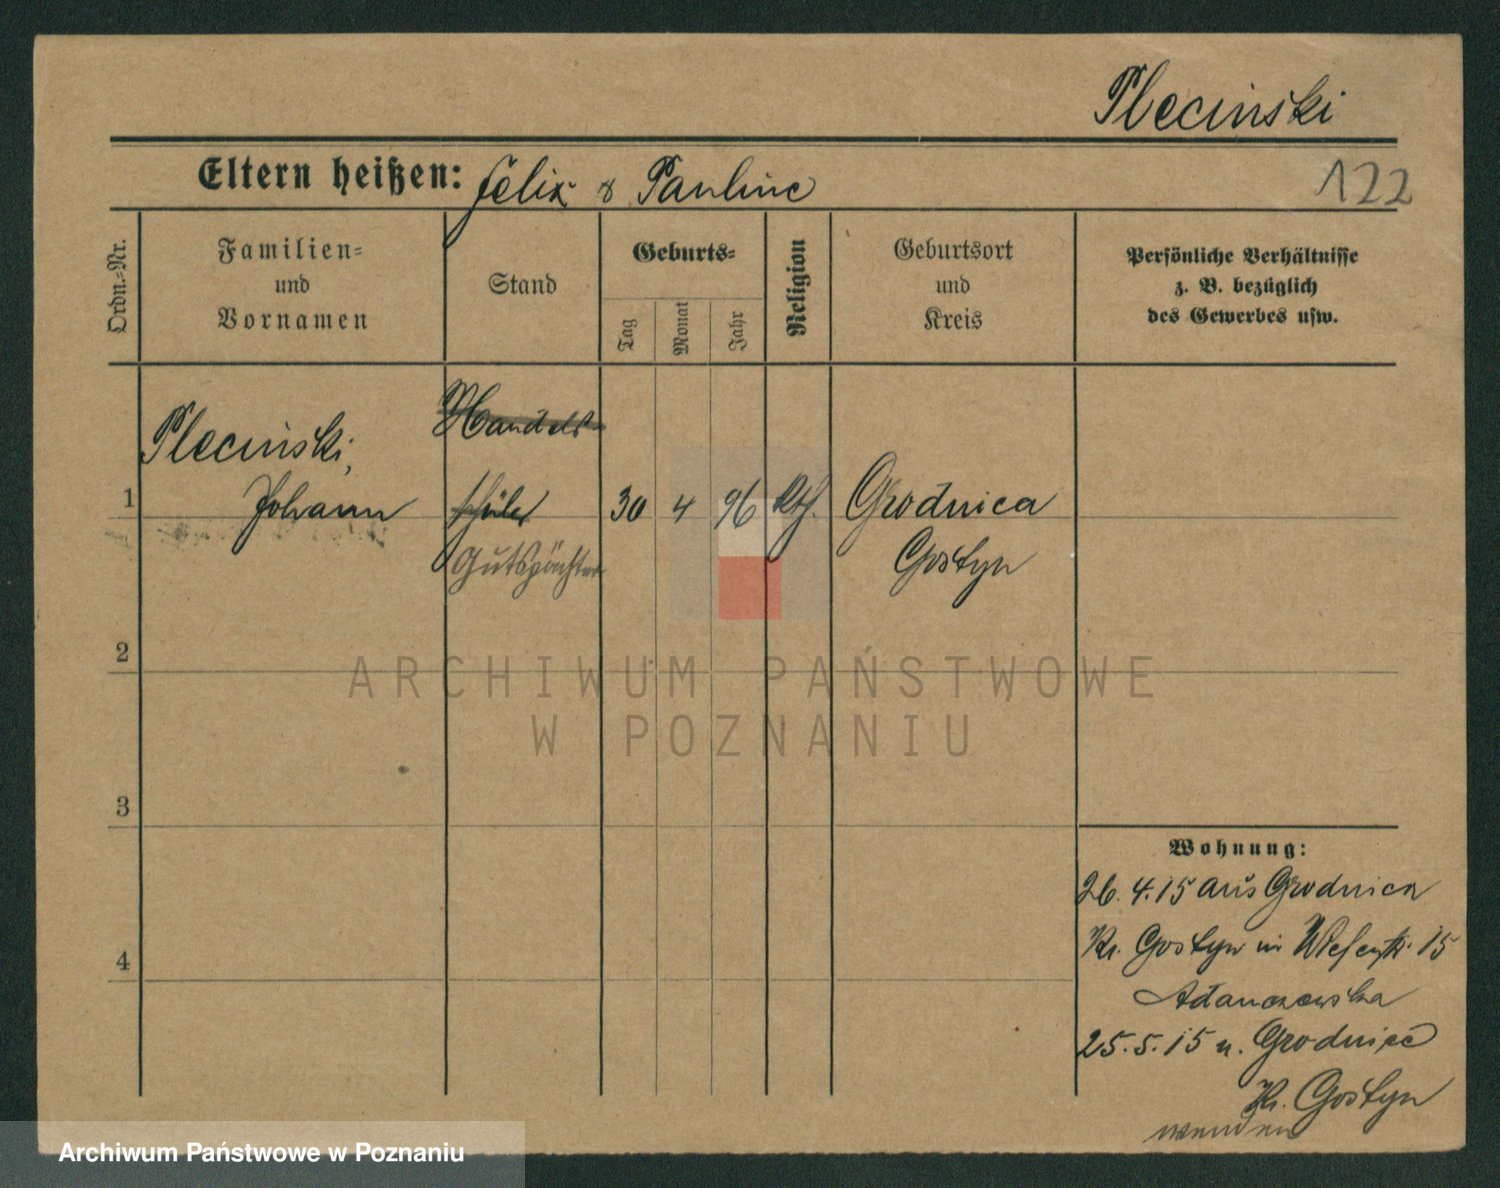 Pleciński
Eltern heißen: Felix & Pauline
122
Ordn.-Nr.
Familien- und Vornamen
Stand
Geburts-
Tag
Monat
Jahr
Religion
Geburtsort und Kreis
Persönliche Verhältnisse
z. B. bezüglich
des Gewerbes usw.
Pleciński,
Handels
1 Johann schüler 30 4 96 Kth. Grodnica
Gutspächter Gostyn
2
ARCHIWUM PAŃSTWOWE
W POZNANIU
3
Wohnung:
26.4.15 aus Grodnica
Kr. Gostyn in Wiesenstr. 15
4
Adamczewska
25.5.15 n. Grodnica
Kr. Gostyn
wenden
Archiwum Państwowe w Poznaniu